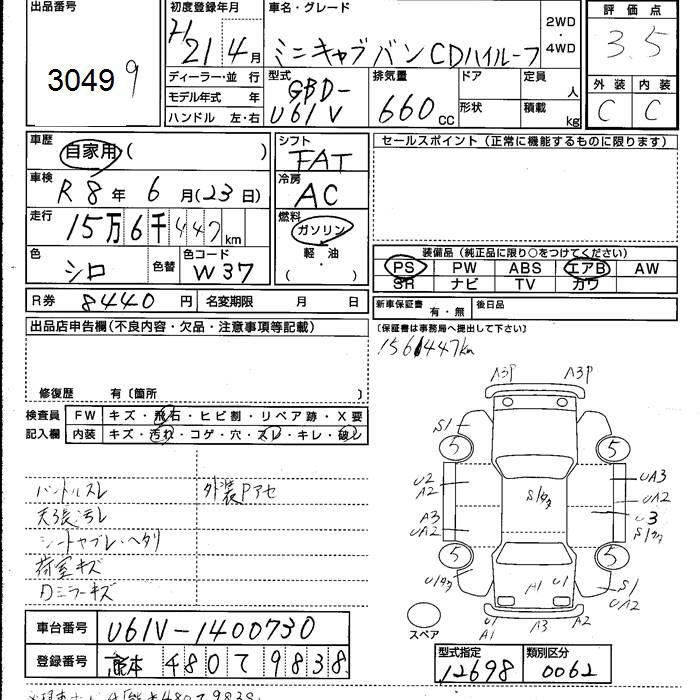 出品番号
30499
初度登録年月
H21年4月
車名・グレード
ミニキャブバン CDハイルーフ
2WD
4WD
評価点
3.5
外装 内装
C C
ディーラー・並行
モデル年式 年
ハンドル 左・右
型式
GBD-
U61V
排気量
660cc
ドア
形状
定員 人
積載 kg
車歴
自家用( )
車検
R8年6月(23日)
走行
15万6千447km
色
シロ
色替
色コード
W37
シフト
FAT
冷房
AC
燃料
ガソリン
軽・油
( )
セールスポイント(正常に機能するものに限ります)
装備品(純正品に限り○をつけてください)
PS PW ABS エアB AW
SR ナビ TV カワ
R券 8440円 名変期限 月 日
新車保証書 有・無 後日品
(保証書は事務局へ提出して下さい)
出品店申告欄(不良内容・欠品・注意事項等記載)
156447km
修復歴 有〔箇所 〕
検査員 FW キズ・飛石・ヒビ割・リペア跡・X要
記入欄 内装 キズ・汚れ・コゲ・穴・スレ・キレ・破レ
ハンドルスレ 外装Pアセ
天張汚レ
シートヤブレ・ヘタリ
荷室キズ
Dミラーキズ
A3P A3P
S1
5 5
U2 A2
UA3
UA2
S1
A3
UA2
U3
5 5
A1 U1
S1
UA2
U1 A1 A3 A2
スペア
車台番号 U61V-1400730
登録番号 熊本 480 て 9838
型式指定 類別区分
12698 0062